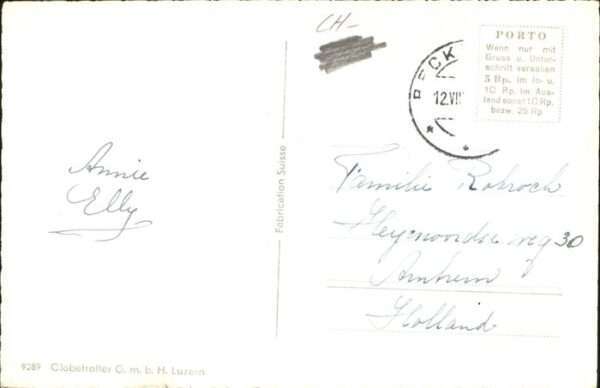 CH-
PORTO
Wenn nur mit
Gruss u. Unter-
schrift versehen
5 Rp. im In- u.
10 Rp. im Aus-
land sonst 10 Rp.
bezw. 25 Rp
BECK
12.VII
Annie
Elly
Fabrication Suisse
Familie Rohroch
30
Arnhem
Holland
9289 Globetrotter G. m. b. H. Luzern